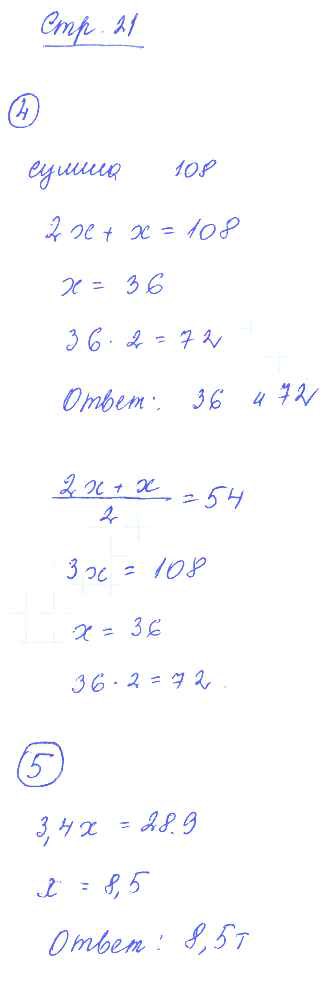 Стр. 21
4
сумма 108
2x + x = 108
x = 36
36 · 2 = 72
Ответ: 36 и 72
2x + x
2
= 54
3x = 108
x = 36
36 · 2 = 72.
5
3,4x = 28.9
x = 8,5
Ответ: 8,5т